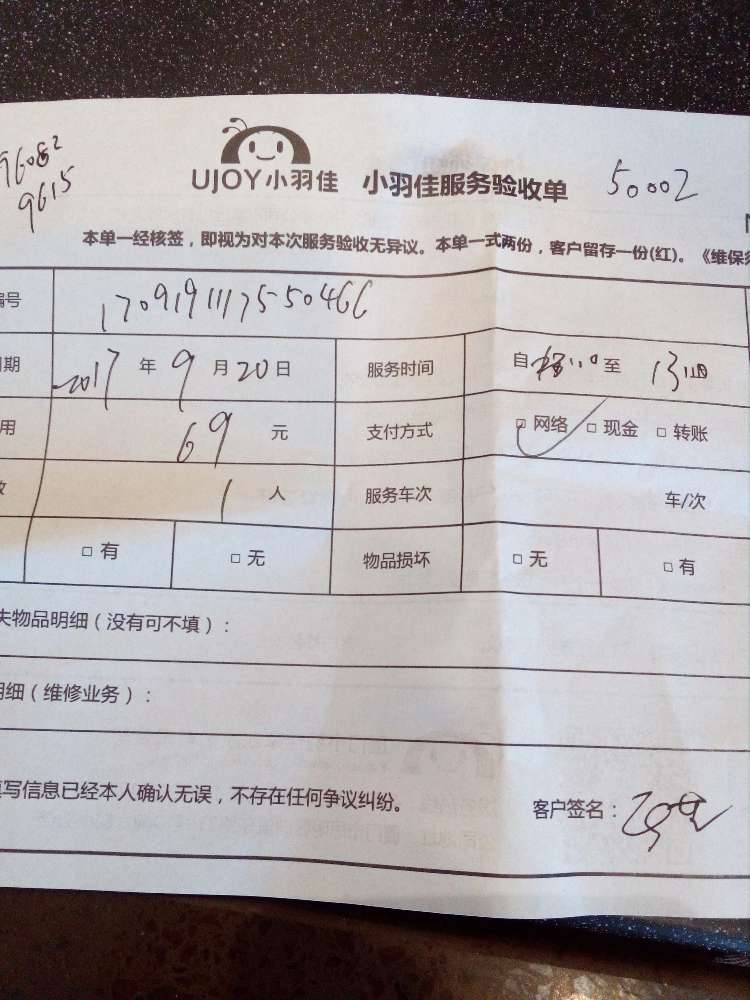 96082
9615
UJOY小羽佳 小羽佳服务验收单 50002
本单一经核签，即视为对本次服务验收无异议。本单一式两份，客户留存一份(红)。《维保须
编号 1709191117550466
日期 2017 年 9 月 20 日 服务时间 自 至
用 69 元 支付方式 □ 网络 □ 现金 □ 转账
数 1 人 服务车次 车/次
□ 有 □ 无 物品损坏 □ 无 □ 有
失物品明细（没有可不填）：
明细（维修业务）：
填写信息已经本人确认无误，不存在任何争议纠纷。 客户签名：